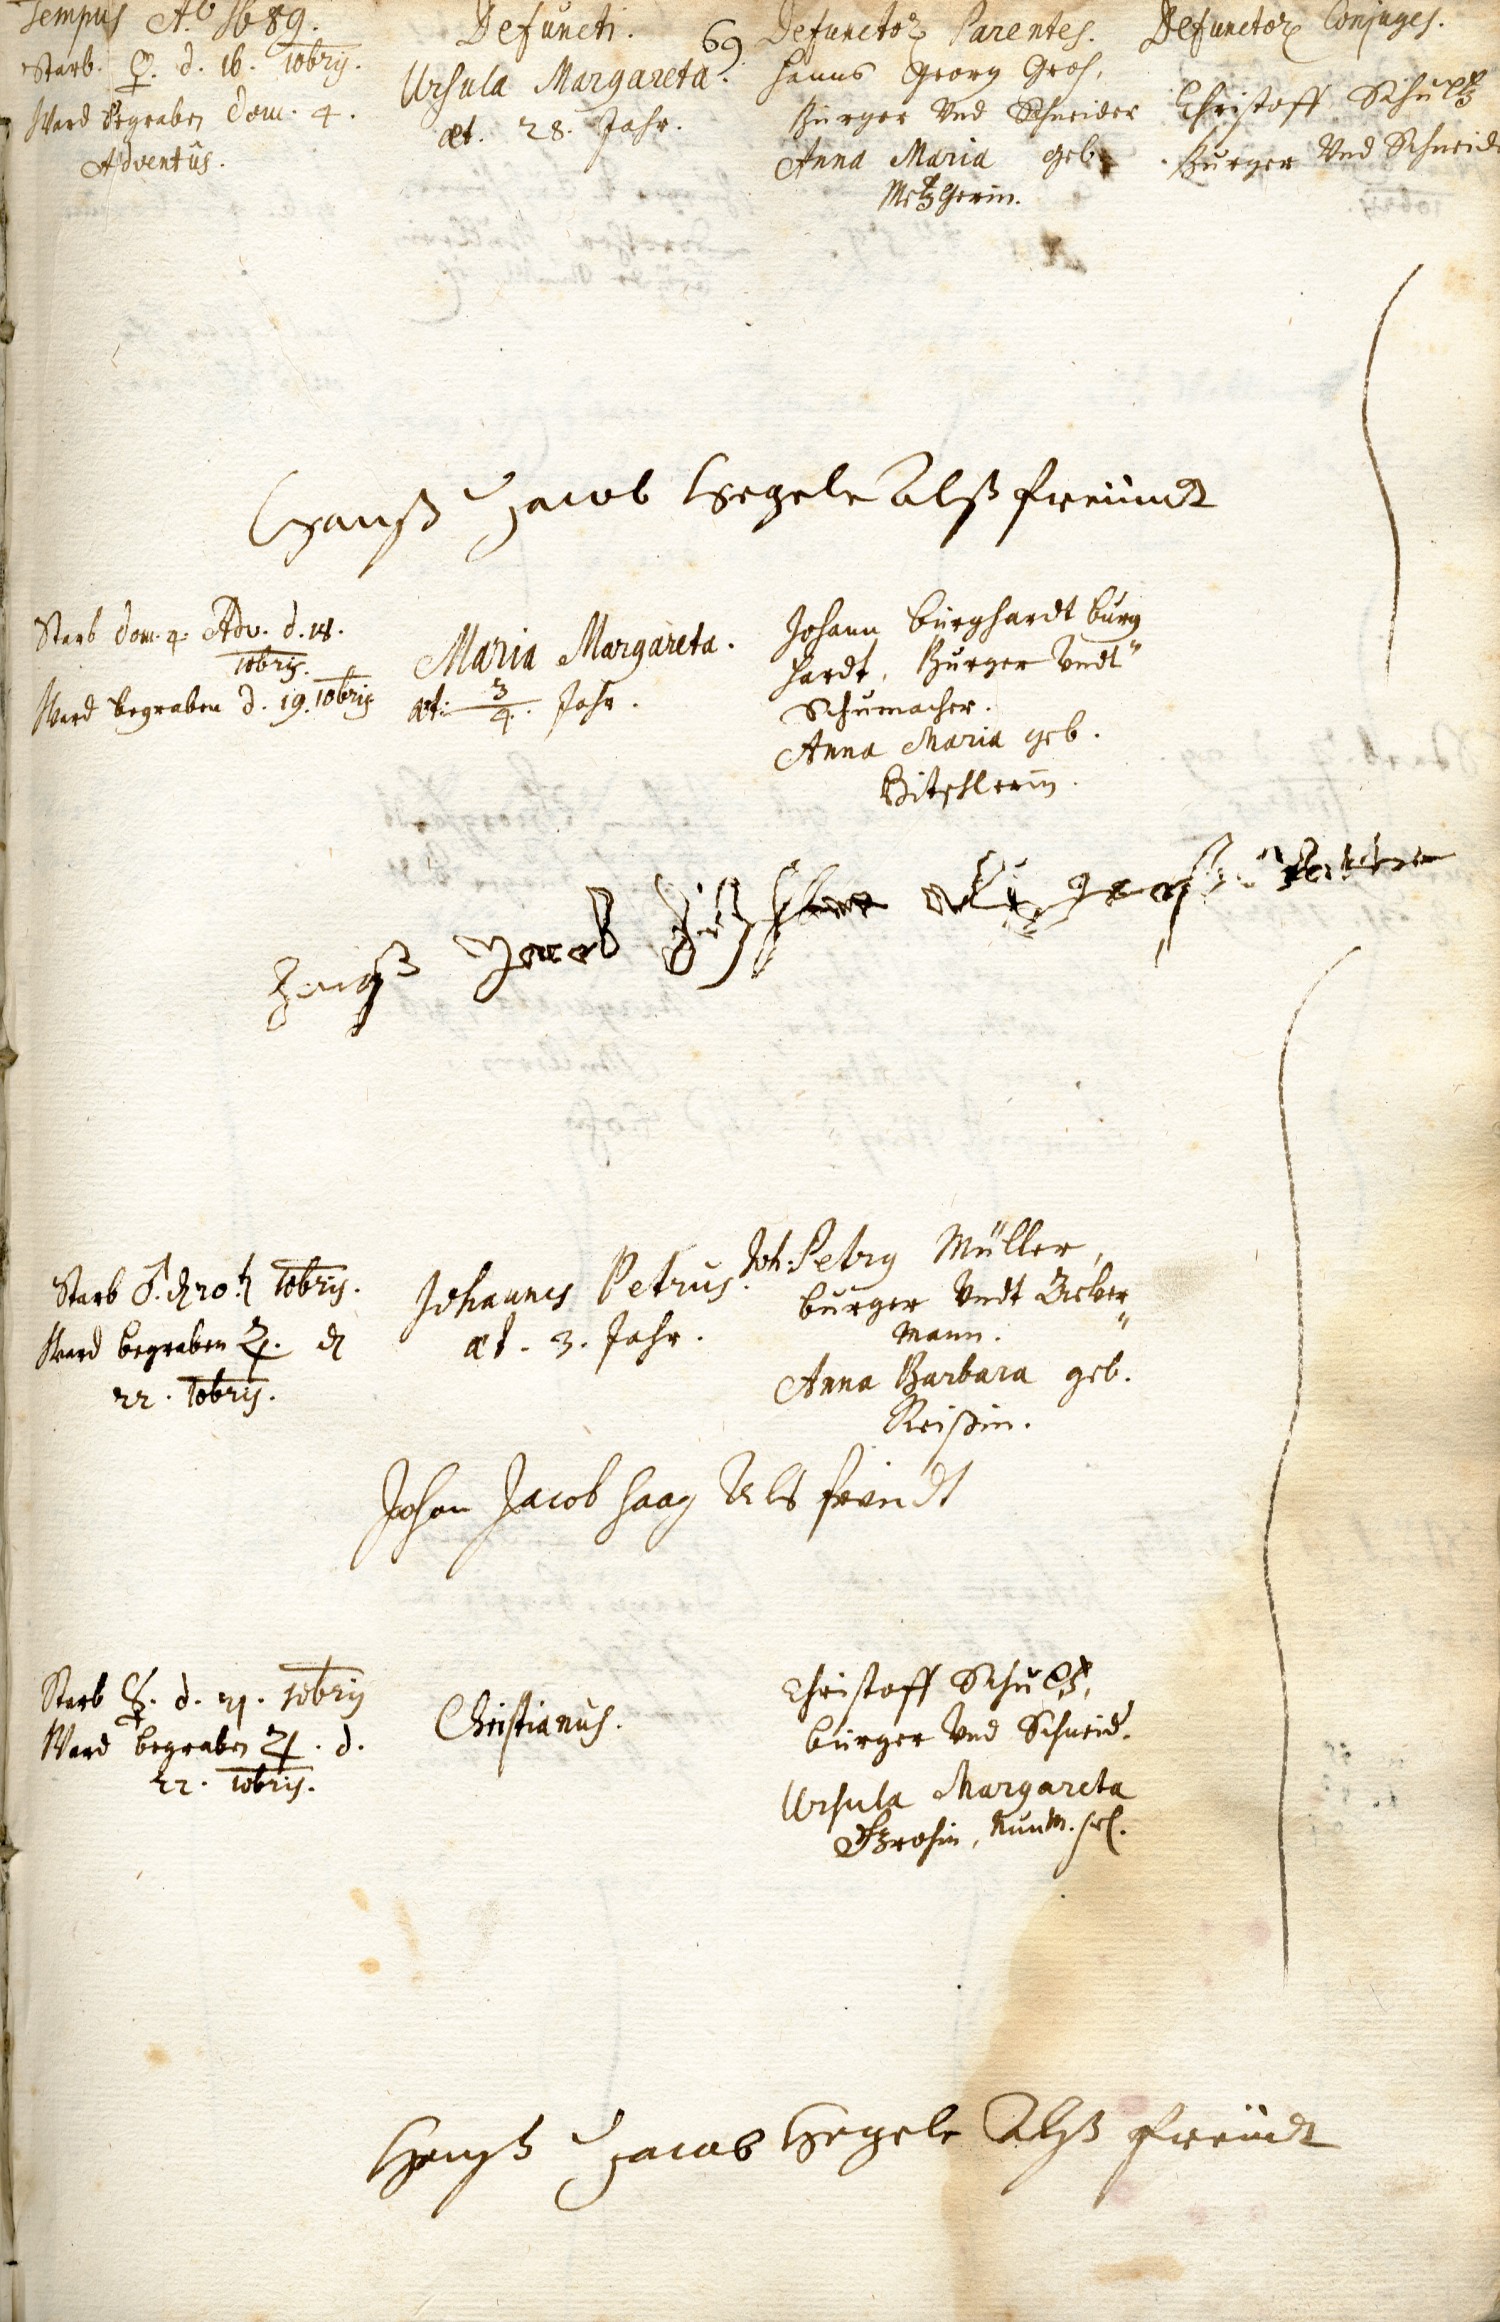 Tempus Aō 1689.
Defuncti.
69
Defunctor. Parentes.
Defunctor. Conjuges.
Starb ♀. d. 16. 10bris.
Ward begraben Dom. 4.
Adventûs.
Ursula Margareta.
æt. 28. Jahr.
Hanns Georg Groh,
Burger Und Schneider
Anna Maria geb.
Metzgerin.
Christoff Schultz
Burger Und Schneid
Hanß Jacob Hegele Alß freündt
Starb dom. 4. Adv. d. 18.
10bris.
Ward begraben d. 19. 10bris
Maria Margareta.
æt. 3/4. Jahr.
Johann Burghardt Burg
hardt, Burger Undt
Schumacher.
Anna Maria geb.
Bitschlerin.
Hanß Jacob
Starb ♂. 10bris.
Ward begraben ♃. d
22. 10bris.
Johannes Petrus.
æt. 3. Jahr.
Joh. Petry Müller,
burger Undt Acker
Mann.
Anna Barbara geb.
Reißin.
Johan Jacob Haag Als freindt
Starb ☿. d. 21. 10bris
Ward begraben ♃. d.
22. 10bris.
Christianus.
Christoff Schultz,
burger Und Schneid.
Ursula Margareta
Grohin, nunm. sel.
Hanß Jacob Hegele Alß freündt